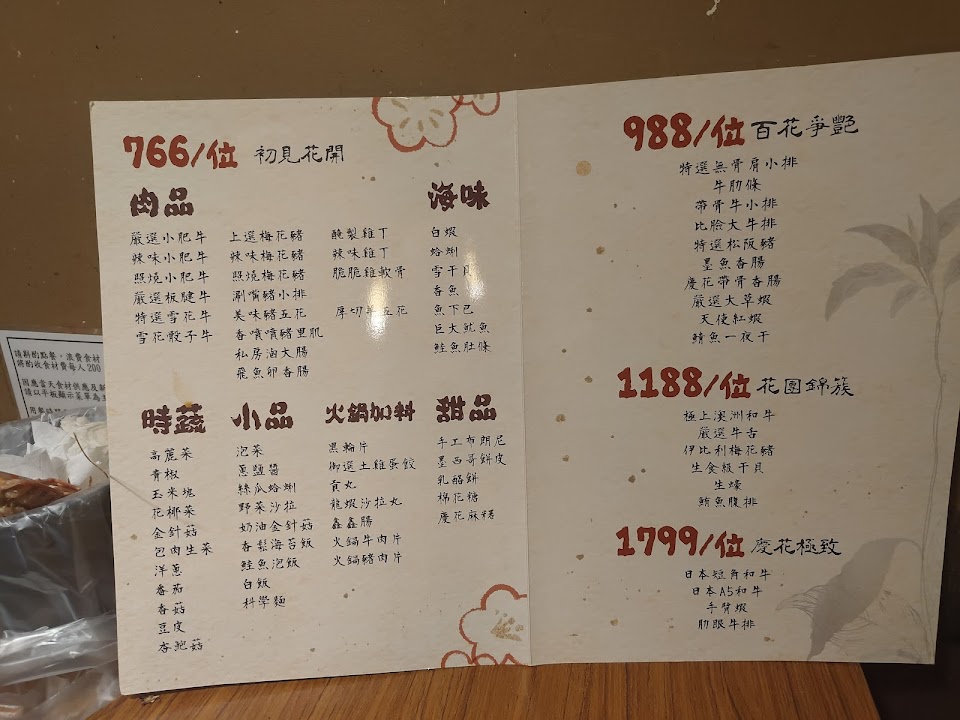 766/位 初見花開
肉品
嚴選小肥牛
辣味小肥牛
照燒小肥牛
嚴選板腱牛
特選雪花牛
雪花骰子牛
上選梅花豬
辣味梅花豬
照燒梅花豬
涮嘴豬小排
美味豬五花
香噴噴豬里肌
私房滷大腸
飛魚卵香腸
醃製雞丁
辣味雞丁
脆脆雞軟骨
厚切羊五花
海味
白蝦
蛤蜊
雪干貝
香魚
魚下巴
巨大魷魚
鮭魚肚條
時蔬
高麗菜
青椒
玉米塊
花椰菜
金針菇
包肉生菜
洋蔥
番茄
香菇
豆皮
杏鮑菇
小品
泡菜
蔥鹽醬
絲瓜蛤蜊
野菜沙拉
奶油金針菇
香鬆海苔飯
鮭魚泡飯
白飯
科學麵
火鍋加料
黑輪片
御選土雞蛋餃
貢丸
龍蝦沙拉丸
鑫鑫腸
火鍋牛肉片
火鍋豬肉片
甜品
手工布朗尼
墨西哥餅皮
乳酪餅
棉花糖
慶花麻糬
988/位 百花爭艷
特選無骨肩小排
牛肋條
帶骨牛小排
比臉大牛排
特選松阪豬
墨魚香腸
慶花帶骨香腸
嚴選大草蝦
天使紅蝦
鯖魚一夜干
1188/位 花團錦簇
極上澳洲和牛
嚴選牛舌
伊比利梅花豬
生食級干貝
生蠔
鮪魚腹排
1799/位 慶花極致
日本短角和牛
日本A5和牛
手臂蝦
肋眼牛排
請斟酌點餐，浪費食材
將酌收食材費每人200
因應當天食材供應及新
請以平板顯示菜單為主